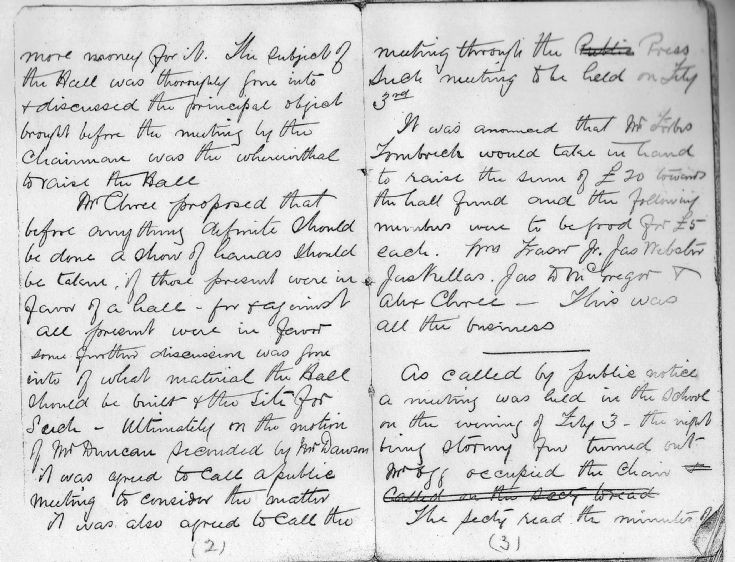 more money for it. The subject of
the Hall was thoroughly gone into
& discussed the principal object
brought before the meeting by the
Chairmane was the wherewithal
to raise the Hall
Mr Chree proposed that
before anything definite should
be done a show of hands should
be taken, if those present were in
favor of a hall - for & against
all present were in favor
some further discussion was gone
into of what material the Hall
should be built & the site for
Such - Ultimately on the motion
of Mr Duncan seconded by Mr Dawson
it was agreed to call a public
meeting to consider the matter
it was also agreed to call the
(2)
meeting through the Public Press
Such meeting to be held on Feby
3rd
It was announced that Mr Forbes
Tombreck would take in hand
to raise the sum of £20 towards
the hall fund and the following
members were to be good for £5
each. Mrs Fraser Jr. Jas Webster
Jas Kellas. Jas D McGregor &
Alex Chree — This was
all the business
As called by public notice
a meeting was held in the School
on the evening of Feby 3 - the night
being stormy few turned out
Mr Ogg occupied the chair &
Called on the Secty to read
The Secty read the minutes of
(3)